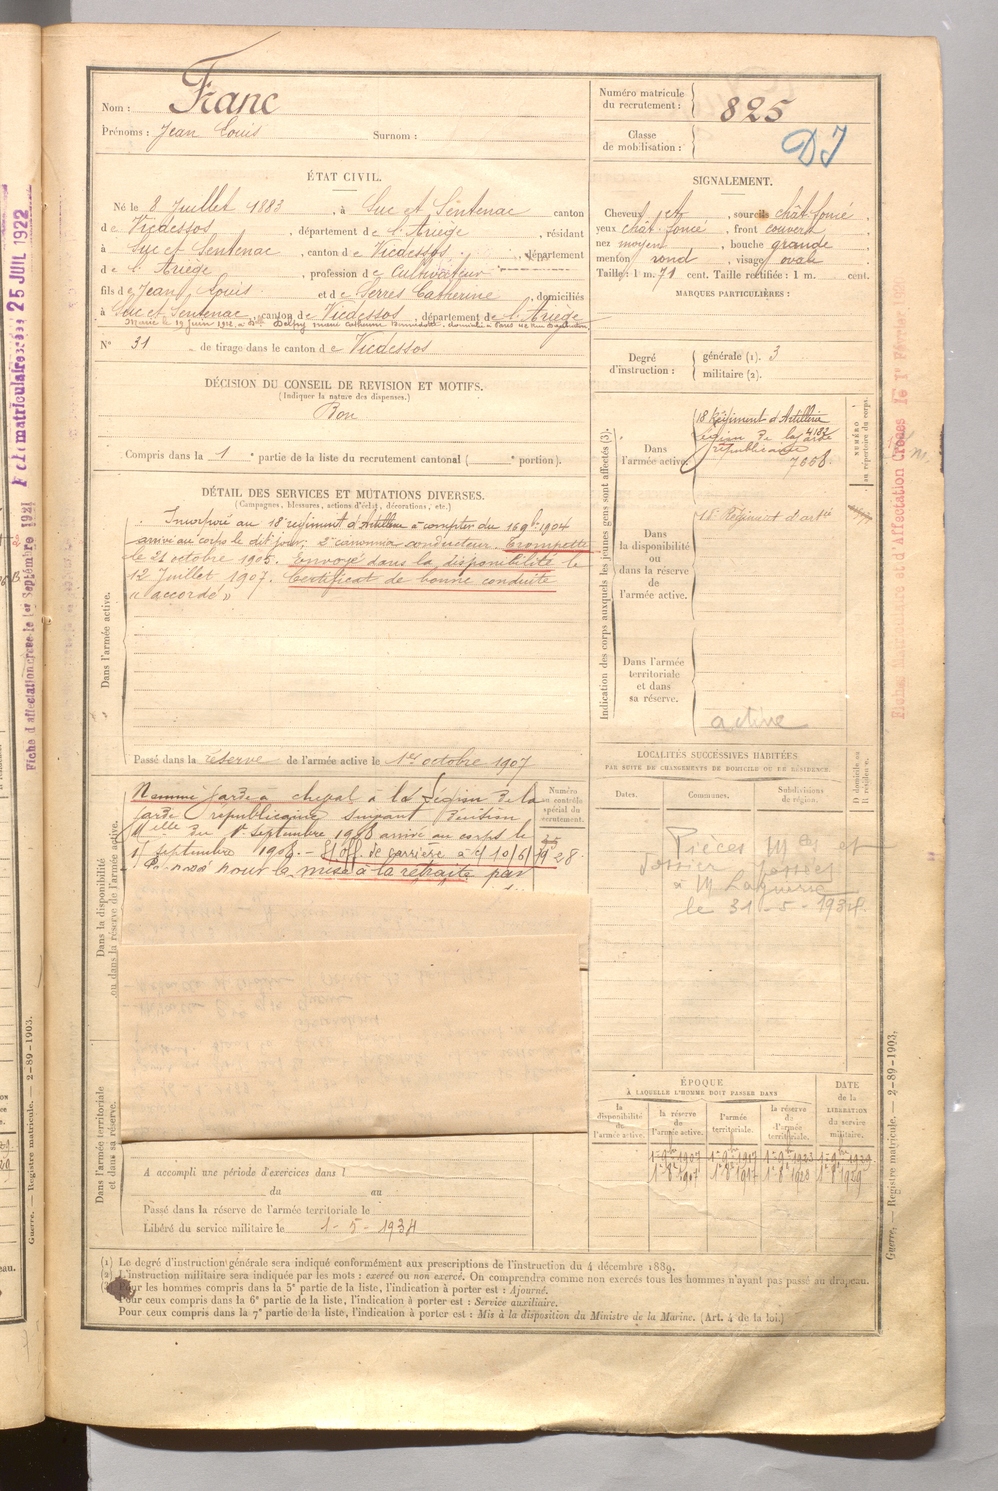 Nom : Franc
Prénoms : Jean Louis Surnom :
Numéro matricule
du recrutement : 825
Classe
de mobilisation :
DJ
ÉTAT CIVIL.
Né le 8 Juillet 1883, à Suc et Sentenac canton
de Vicdessos, département de l'Ariège, résidant
à Suc et Sentenac, canton de Vicdessos, département
de l'Ariège, profession de Cultivateur
fils de Jean Louis et de Serres Catherine, domiciliés
à Suc et Sentenac, canton de Vicdessos, département de l'Ariège
Marié le 19 Juin 1912, à Dlle Delpy Marie Catherine
N° 31 de tirage dans le canton de Vicdessos
SIGNALEMENT.
Cheveux et, sourcils chât. foncé
yeux chât. foncé, front couvert
nez moyen, bouche grande
menton rond, visage ovale
Taille : 1 m. 71 cent. Taille rectifiée : 1 m. cent.
MARQUES PARTICULIÈRES :
Degré
d'instruction :
générale (1). 3
militaire (2).
DÉCISION DU CONSEIL DE REVISION ET MOTIFS.
(Indiquer la nature des dispenses.)
Bon
Compris dans la 1e partie de la liste du recrutement cantonal ( e portion).
DÉTAIL DES SERVICES ET MUTATIONS DIVERSES.
(Campagnes, blessures, actions d'éclat, décorations, etc.)
Dans l'armée active.
Incorporé au 18e régiment d'Artillerie à compter du 16 9bre 1904
arrivé au corps le dit jour, 2e canonnier conducteur. Trompette
le 21 octobre 1905. Envoyé dans la disponibilité le
12 Juillet 1907. Certificat de bonne conduite
"accordé"
Passé dans la réserve de l'armée active le 1er octobre 1907
Indication des corps auxquels les jeunes gens sont affectés (3).
NUMÉRO
au répertoire du corps.
Dans
l'armée active.
18 Régiment d'Artillerie
4182
Légion de la garde
républicaine
7608.
Dans
la disponibilité
ou
dans la réserve
de
l'armée active.
18e Régiment d'artie
Dans l'armée
territoriale
et dans
sa réserve.
active
Dans la disponibilité
ou dans la réserve de l'armée active.
Nommé garde à cheval à la Légion de la
garde républicaine suivant décision
Mielle du 1er septembre 1908 arrivé au corps le
septembre 1908. - S/off. de carrière à c/ 10/6/1928
mise à la retraite par
Numéro
au contrôle
spécial du
recrutement.
LOCALITÉS SUCCESSIVES HABITÉES
PAR SUITE DE CHANGEMENTS DE DOMICILE OU DE RÉSIDENCE.
Dates.
Communes.
Subdivisions
de région.
D domicile ou
R résidence.
Pièces Mles et
dossier
à M
le 31 - 5 - 1934.
Dans l'armée territoriale
et dans sa réserve.
A accompli une période d'exercices dans l
du au
Passé dans la réserve de l'armée territoriale le
Libéré du service militaire le 1 - 5 - 1934
ÉPOQUE
À LAQUELLE L'HOMME DOIT PASSER DANS
DATE
de la
LIBÉRATION
du service
militaire.
la
disponibilité
de
l'armée active.
la réserve
de
l'armée active.
l'armée
territoriale.
la réserve
de
l'armée
territoriale.
(1) Le degré d'instruction générale sera indiqué conformément aux prescriptions de l'instruction du 4 décembre 1889.
(2) L'instruction militaire sera indiquée par les mots : exercé ou non exercé. On comprendra comme non exercés tous les hommes n'ayant pas passé au drapeau.
Pour les hommes compris dans la 5e partie de la liste, l'indication à porter est : Ajourné.
Pour ceux compris dans la 6e partie de la liste, l'indication à porter est : Service auxiliaire.
Pour ceux compris dans la 7e partie de la liste, l'indication à porter est : Mis à la disposition du Ministre de la Marine. (Art. 4 de la loi.)
Guerre. — Registre matricule. — 2-89-1903.
Guerre. — Registre matricule. — 2-89-1903.
25 JUIL 1922
Fiche d'affectation créée le 1er Septembre 1921